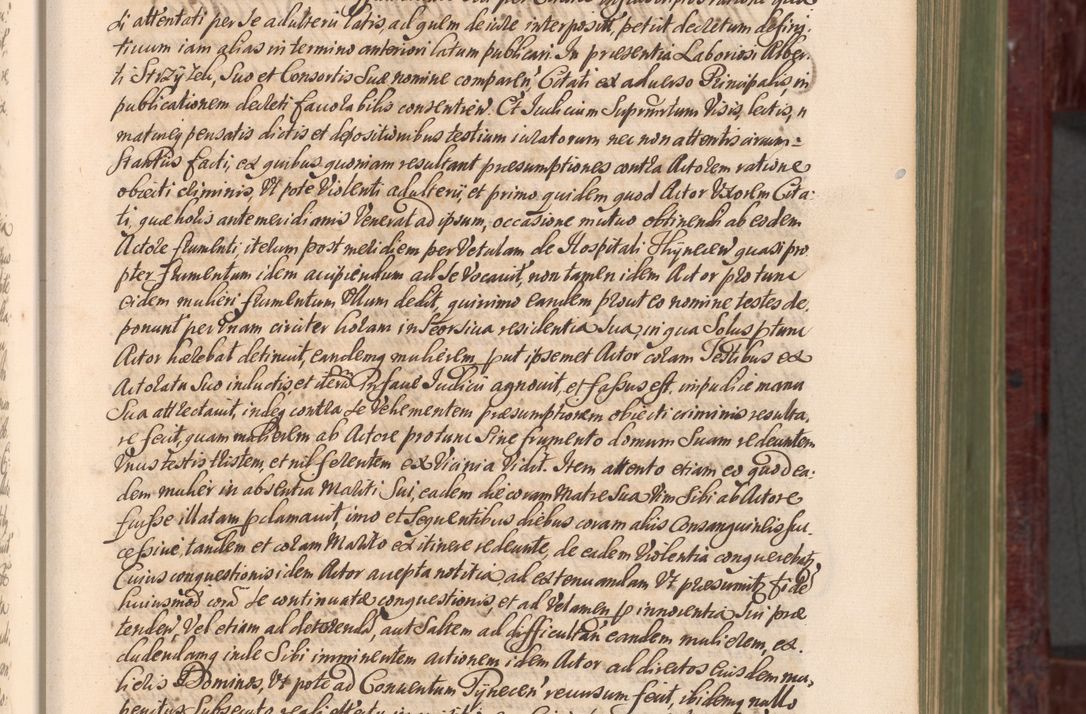 di attentati per se adulterii latis, ad quem de iure interposit, petiit decretum defini:
tiuum iam alias in termino anteriori latum publicari. In præsentia Laboriosi Alber:
ti Strzyżek, Suo et Consortis Suæ nomine comparen, Citati ex aduerso Principalis, in
publicationem decreti fauorabilis consentien. Et Iudicium Supremum Visis, lectis,
matureq pensatis dictis et depositionibus testium iuratorum nec non attentis circum=
stantiis facti, ex quibus quoniam resultant præsumptiones contra Actorem ratione
obiecti criminis, Vt pote Violenti adulterii, et primo quidem quod Actor Vxorem Cita:
ti, quæ horis antemeridianis Venerat ad ipsum, occasione mutuo obtinendi ab eodem
Actore frumenti, iterum post meridiem per Vetulam de Hospitali Thynecen quasi pro
pter frumentum idem accipiendum ad se Vocauit, non tamen idem Actor pro tunc
eidem mulieri frumentum Vllum dedit, quinimo eandem prout eo nomine testes de,
ponunt per Vnam circiter horam in Seorsiua residentia Sua, in qua Solus ptunc
Actor hærebat detinuit, eandemq mulierem, put ipsemet Actor coram Testibus ex
Actoratu Suo inductis, et iterum in facie Iudicii agnouit, et fassus est, impudice manu
Sua attrectauit, indeq contra se Vehementem præsumptionem obiecti criminis resulta,
re fecit, quam mulierem ab Actore pro tunc Sine frumento domum Suam redeuntem
Vnus testis tristem, et nil ferentem ex Vicinia Vidit. Item attento etiam eo quod ea:
dem mulier in absentia Mariti Sui, eadem die coram Matre Sua Vim Sibi ab Actore
fuisse illatam pclamauit, imo et Sequentibus diebus coram aliis Consanguineis suc
cessiue, tandem et coram Marito ex itinere redeunte, de eadem Violentia conquerebatur,
Cuius conquestionis idem Actor accepta notitia ad extenuandam Vt præsumitur fidem
huiusmodi coram se continuatæ conquestionis, et ad Velamen p innocentia Sui præ
tenden, Vel etiam ad deterrendam, aut Saltem ad difficultan eandem mulierem, ex.
cludendamq inde Sibi imminentem actionem idem Actor ad directos eiusdem mu,
lieris Dominos, Vt pote ad Conuentum Tynecen recursum fecit, ibidemq nullo